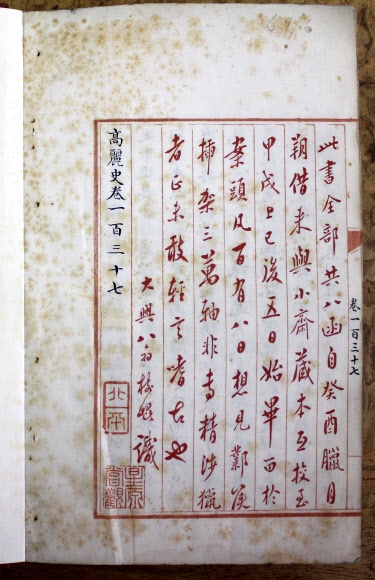 卷一百三十七
此書全部共八函自癸酉臘月
朔借来與小齋藏本互校至
甲戌上巳後五日始畢而於
案頭凡百有八日想見鄴侯
插架三萬軸非專精涉獵
者正未敢輕言嗜古也
大興翁樹崐識
北平
星原嘗觀
高麗史卷一百三十七